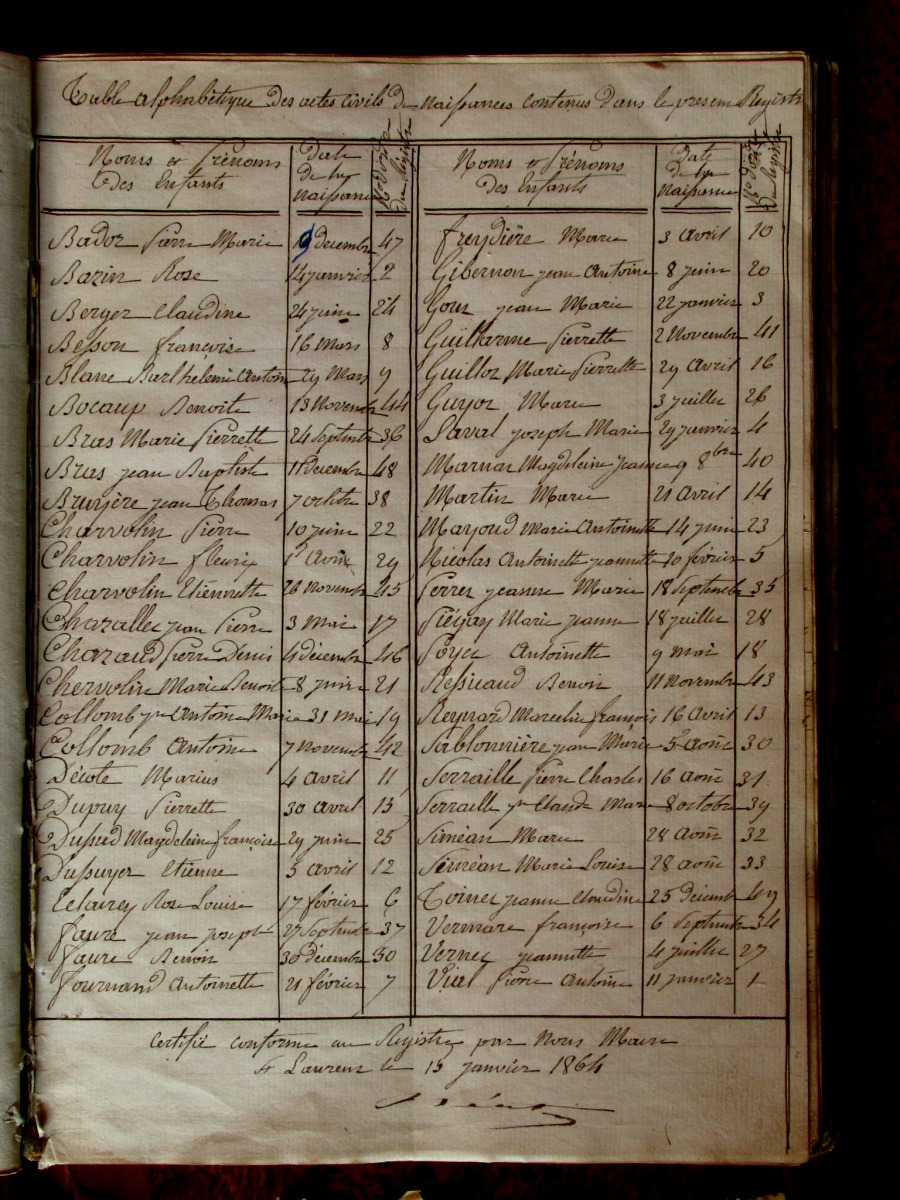 Table alphabétique des actes civils de Naissances contenus dans le présent Registre
Noms et Prénoms des Enfants
Date de la naissance
No d'ordre du registre
Bador Pierre Marie 9 décembre 47
Bazin Rose 14 janvier 2
Berger Claudine 24 juin 24
Besson françoise 16 Mars 8
Blanc Barthelemi Antoine 29 Mars 9
Bocaup Benoite 13 Novembre 44
Bras Marie Pierrette 24 Septembre 36
Bras jean Baptiste 11 décembre 48
Bruyère jean Thomas 7 octobre 38
Charvolin Pierre 10 juin 22
Charvolin fleurie 1er Août 29
Charvolin Etiennette 26 Novembre 45
Chazallet jean Pierre 3 Mai 17
Chazaud Pierre Denis 4 décembre 46
Chervolin Marie Benoite 8 juin 21
Collomb jn Antoine Marie 31 Mai 19
Collomb Antoine 7 Novembre 42
Décote Marius 4 Avril 11
Dupuy Pierrette 30 Avril 15
Magdeleine françoise 29 juin 25
Dussuyer Etienne 5 Avril 12
Rose Louise 17 février 6
faure jean joseph 27 Septembre 37
faure Benoit 30 décembre 50
fournand Antoinette 21 février 7
Noms et Prénoms des Enfants
Date de la naissance
No d'ordre du registre
freydière Marie 3 Avril 10
Gibernon jean Antoine 8 juin 20
Gour jean Marie 22 janvier 3
Guilharme Pierrette 2 Novembre 41
Guillot Marie Pierrette 29 Avril 16
Guyot Marie 3 juillet 26
Laval joseph Marie 29 janvier 4
Marnas Magdeleine jeanne 9 8bre 40
Martin Marie 21 Avril 14
Mayoud Marie Antoinette 14 juin 23
Nicolas Antoinette jeannette 10 février 5
Perret jeanne Marie 18 Septembre 35
Piégay Marie jeanne 18 juillet 28
Poyet Antoinette 9 mai 18
Ressicaud Benoit 11 Novembre 43
Reynard Marcelin françois 16 Avril 13
Sablonnière jean Marie 5 Août 30
Serraille Pierre Charles 16 Août 31
Serraille jn Claude Marie 8 octobre 39
Siméan Marie 28 Août 32
Siméan Marie Louise 28 Août 33
Toinet jeanne Claudine 25 Décembre 49
Vermare françoise 6 Septembre 34
Vernet jeannette 4 juillet 27
Vial Pierre Antoine 11 janvier 1
Certifié conforme au Registre par Nous Maire
St Laurent le 15 janvier 1864